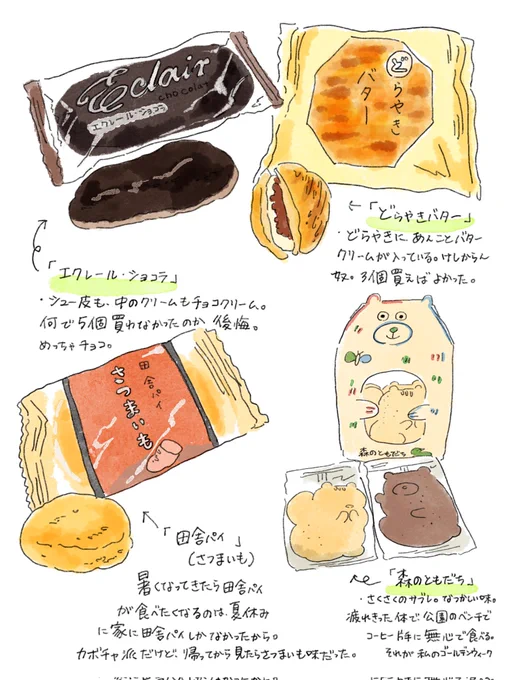 Eclair
chocolat
エクレール・ショコラ
「エクレール・ショコラ」
・シュー皮も、中のクリームもチョコクリーム。
何で5個買わなかったのか後悔。
めっちゃチョコ。
どらやき
バター
「どらやきバター」
・どらやきに、あんことバター
クリームが入っている。けしからん
奴。3個買えばよかった。
田舎パイ
さつまいも
「田舎パイ」
(さつまいも)
暑くなってきたら田舎パイ
が食べたくなるのは、夏休み
に家に田舎パイしかなかったから。
カボチャ派だけど、帰ってから見たらさつまいも味だった。
森のともだち
「森のともだち」
・さくさくのサブレ。なつかしい味。
疲れきった体で公園のベンチで
コーヒー片手に無心で食べる。
それが私のゴールデンウィーク